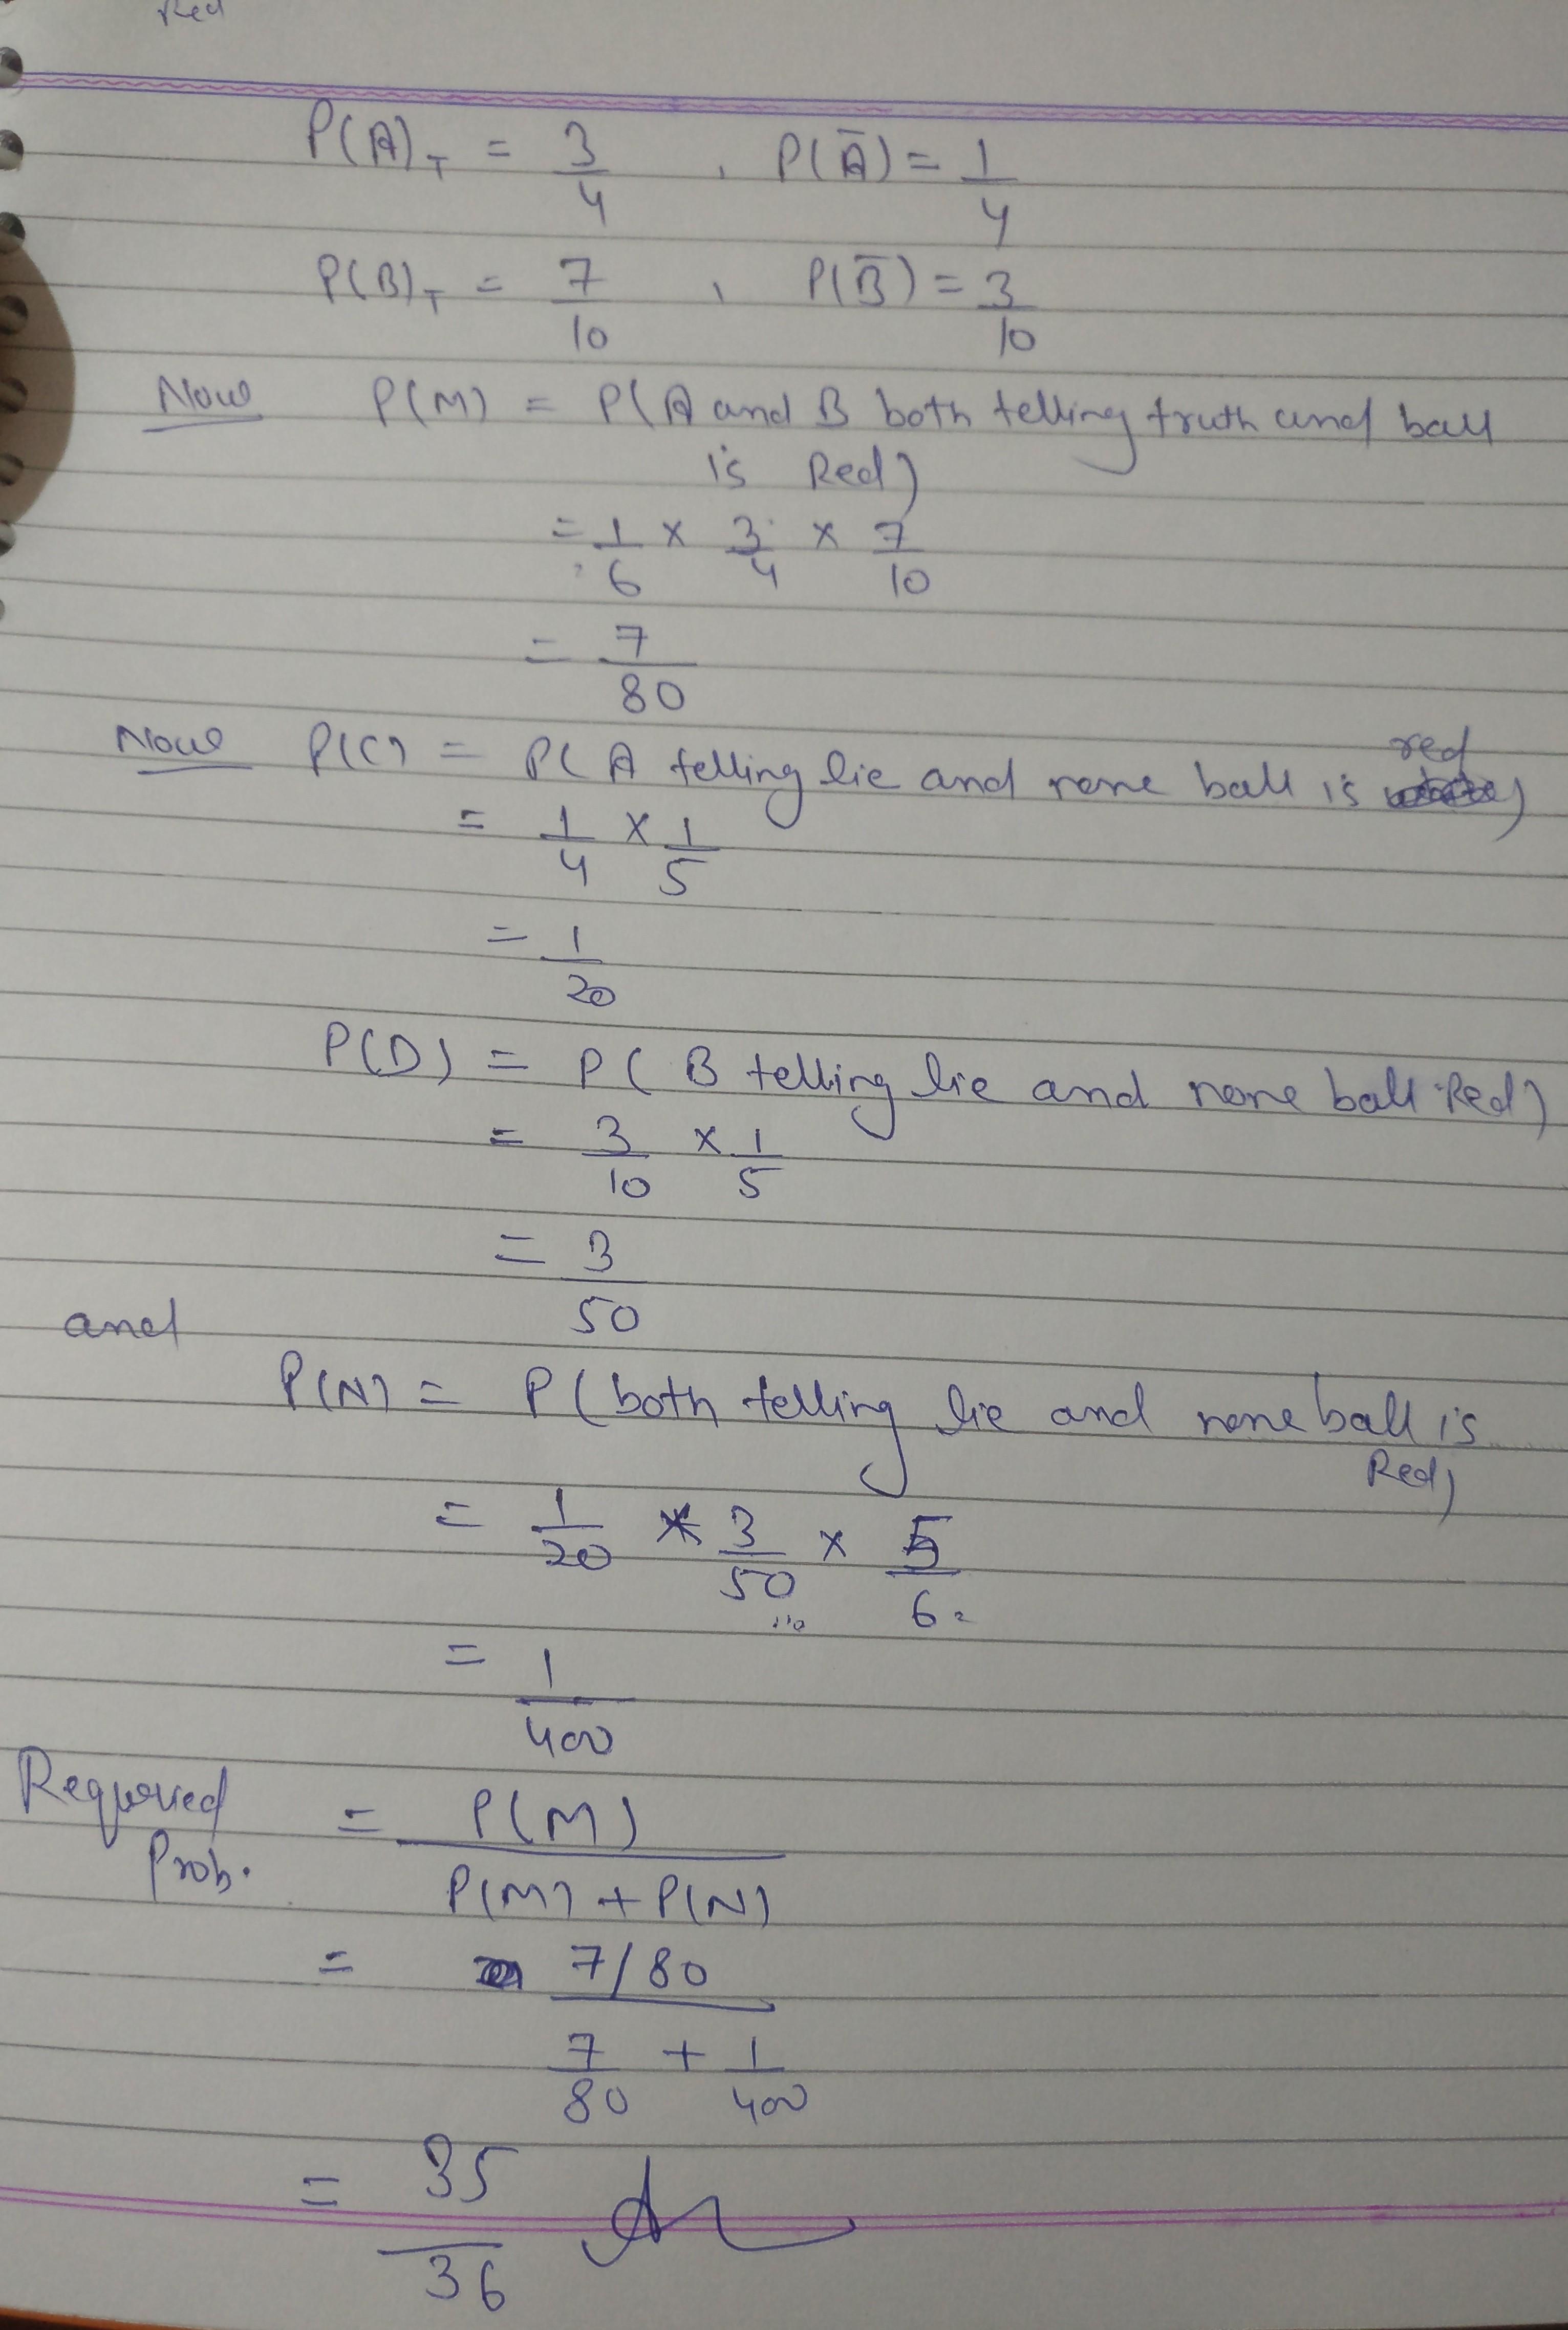 Red
P(A)T = 3/4 , P(Ā) = 1/4
P(B)T = 7/10 , P(B̄) = 3/10
Now P(M) = P(A and B both telling truth and ball
is Red)
= 1/6 × 3/4 × 7/10
= 7/80
Now P(C) = P(A telling lie and none ball is red)
= 1/4 × 1/5
= 1/20
P(D) = P(B telling lie and none ball Red)
= 3/10 × 1/5
= 3/50
and
P(N) = P(both telling lie and none ball is
Red)
= 1/20 × 3/50 × 5/6
= 1/400
Required Prob. = P(M)/P(M) + P(N)
= 7/80 / 7/80 + 1/400
= 35/36